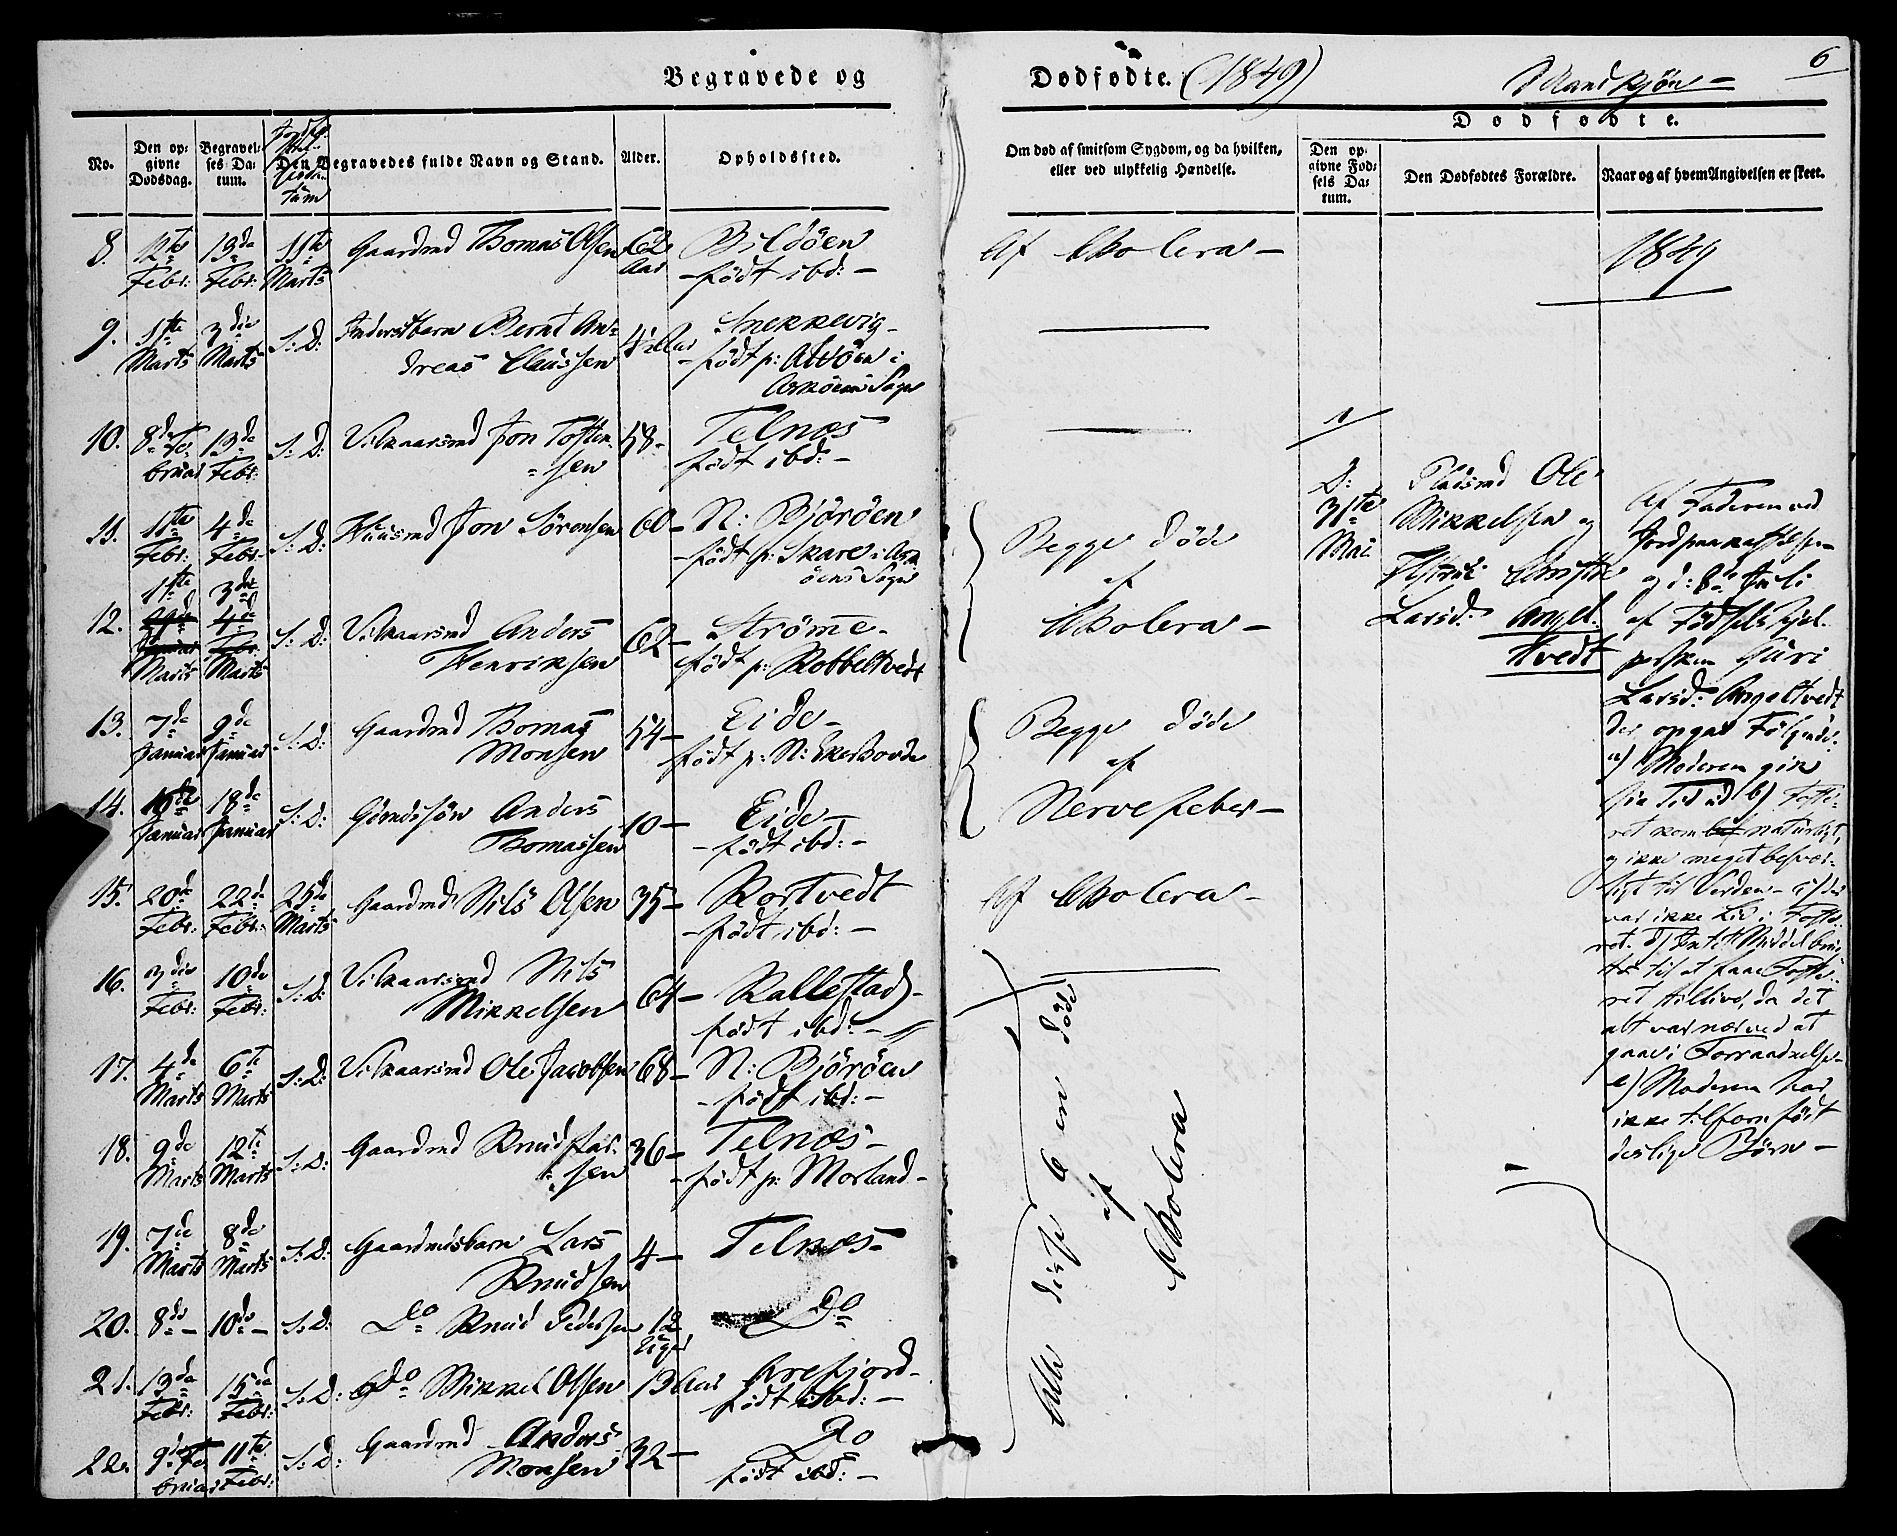 Begravede og Dødfødte. (1849) Mandkjøn 6
No. Den opgivne Dødsdag. Begravelses Datum. Den Begravedes fulde Navn og Stand. Alder. Opholdssted. Om død af smitsom Sygdom, og da hvilken, eller ved ulykkelig Hændelse.
Dødfødte.
Den opgivne Fødsels Datum. Den Dødfødtes Forældre. Naar og af hvem Angivelsen er skeet.
1849
8. 12te Febr: 19de Febr: 11te Marts Gaardmd Thomas Olsen 62 Aar Bildøen
født ibd: – Af Cholera –
9. 1ste Marts 3die Marts S: D: Inderstbarn Bernt Andreas Claussen 4½ Aar Snekkevig –
født p: Alvøen i
Askøens Sogn
10. 8de Februar 13de Febr: S: D: Vilkaarsmd Jon Tostensen 58 – Telnæs
født ibd: –
11. 1ste Febr: 4de Febr: S: D: Huusmd Jon Sørensen 60 – N: Bjørøen
født p: Skare i Askøens Sogn
12. 1ste Marts 3die Marts S: D: Vilkaarsmd Anders Henriksen 62 – Strømme –
født p: Kobbeltvedt
Begge døde
af
Cholera –
13. 7de Januar 9de Januar S: D: Gaardmd Thomas Monsen 54 – Eide –
født p: N: Ekerhovde
14. Januar 18de Januar S: D: Gsmdssøn Anders Thomassen 10 – Eide –
– født ibd: –
Begge døde
af
Nervefeber –
15. 20de Febr: 22de Febr: 25de Marts Gaardmd Nils Olsen 35 – Kortvedt
– født ibd: – Af Cholera –
16. 3die Febr: 10de Febr: S: D: Vilkaarsmd Nils Mikkelsen 64 – Kallestad –
født ibd: –
17. 4de Marts 6te Marts S: D: Vilkaarsmd Ole Jacobsen 68 – N: Bjørøen
– født ibd: –
18. 9de Marts 12te Marts S: D: Gaardmd Knud 36 – Telnæs –
– født p: Morland –
19. 7de Marts 8de Marts S: D: Gaardmdsbarn Lars Knudsen 4 – Telnæs –
20. 8de – 10de – S: D: Do Knud Pedersen 12 Uger Do
21. 13de Febr: 15de Febr: S: D: Do Mikkel Olsen 13 Aar Arefjord –
født ibd: –
22. 9de Februar 11te Febr: S: D: Gaardmd Anders Monsen 32 – Do
født ibd: –
Alle disse 6 ere døde
af
Cholera
1
D: 31te Mai
Pladsmd Ole
Mikkelsen og
Hstru
Larsd: Angel
tvedt
Af Faderen ved
Jordpaakastelsen
og d: 8de Juli
af Fødselshjel-
persken Guri
Larsd: Angeltvedt
der opgav Følgende:
a) Moderen gik
sin Tid ud b) Foste-
ret kom naturligt,
og ikke meget besvær-
ligt til Verden – c) der
var ikke Liv i Foste-
ret. d) Intet Middel brug-
tes til at faae Foste-
ret tillivs, da det
alt var nær ved at
gaae i Forraadnelse –
e) Moderen har
ikke tilforn født
deslige Børn –